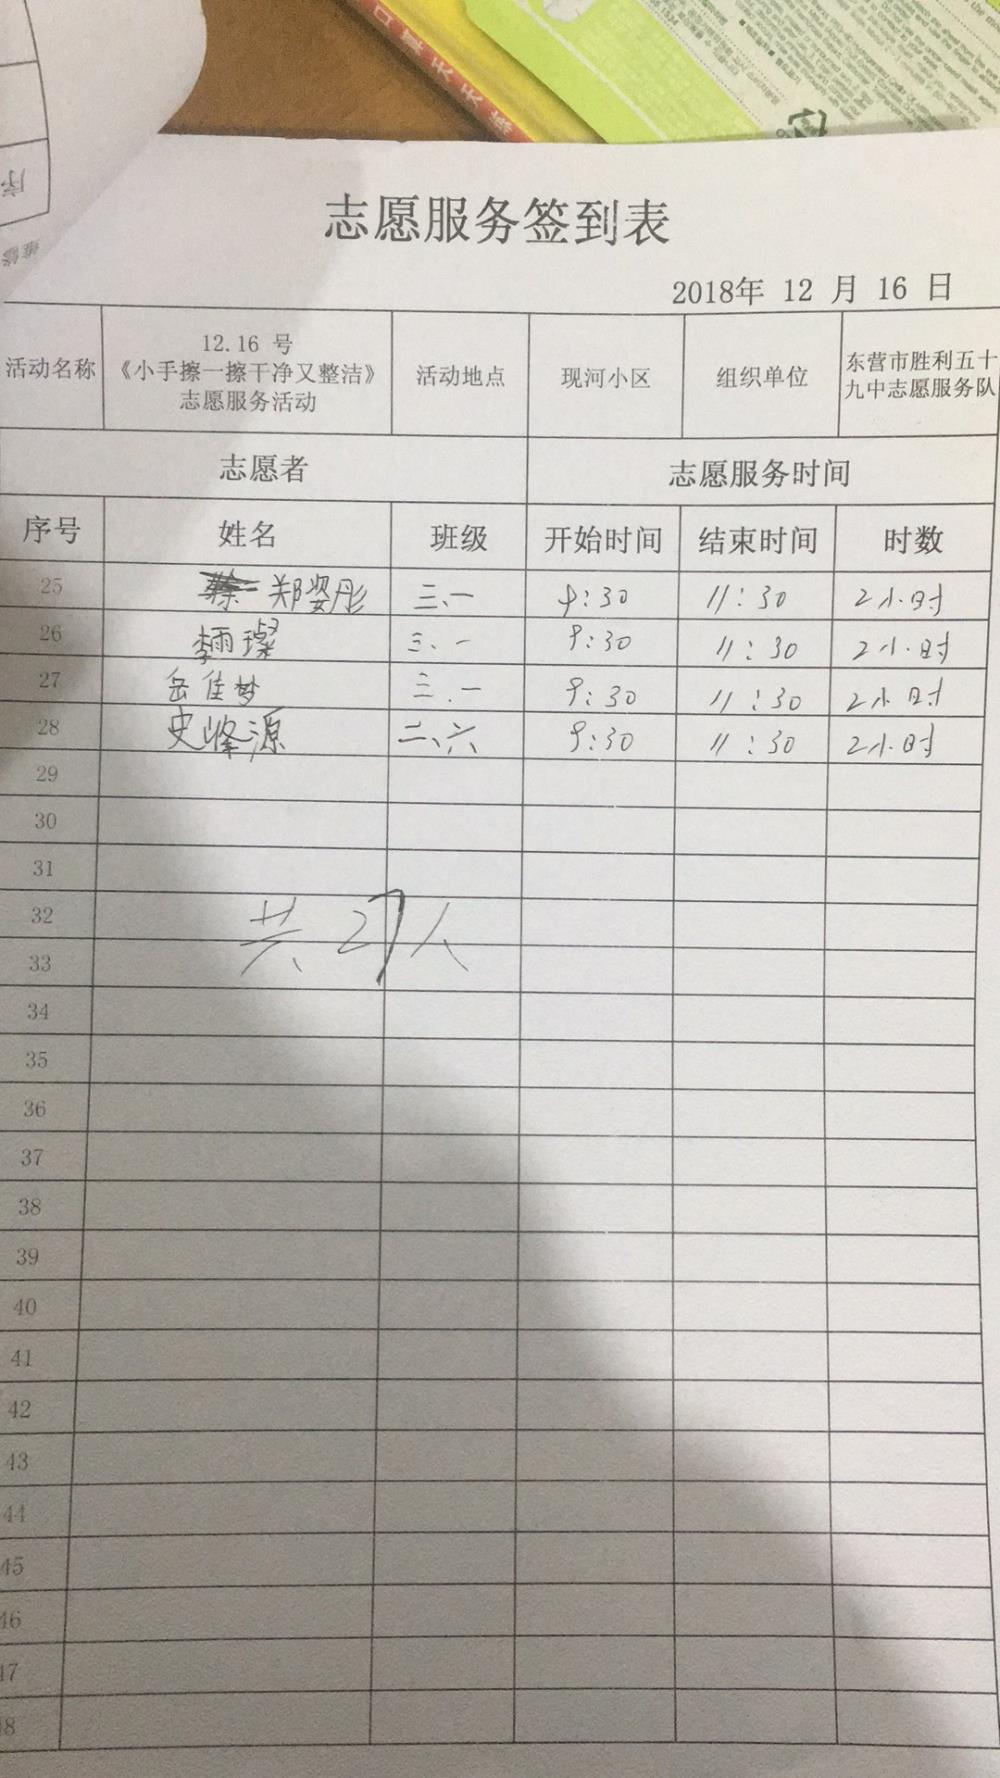 志愿服务签到表
2018年 12 月 16 日
活动名称 12.16 号《小手擦一擦干净又整洁》志愿服务活动 活动地点 现河小区 组织单位 东营市胜利五十九中志愿服务队
志愿者 志愿服务时间
序号 姓名 班级 开始时间 结束时间 时数
25 郑姿彤 三、一 9:30 11:30 2小时
26 李雨璨 三、一 9:30 11:30 2小时
27 岳佳梦 三、一 9:30 11:30 2小时
28 史峰源 二、六 9:30 11:30 2小时
29
30
31
32
共27人
33
34
35
36
37
38
39
40
41
42
43
44
45
46
47
48